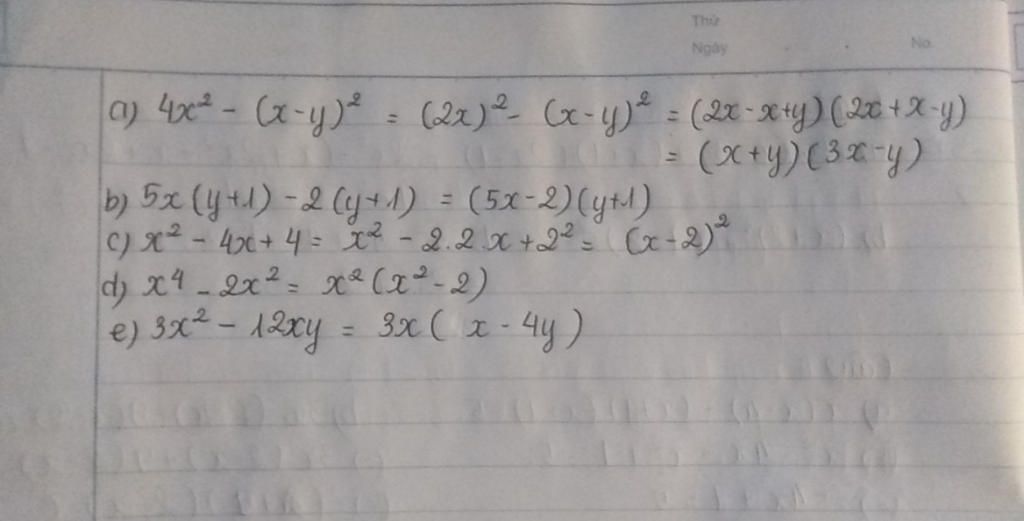 Thứ
Ngày No.
a) 4x² - (x-y)² = (2x)² - (x-y)² = (2x-x+y)(2x+x-y)
= (x+y)(3x-y)
b) 5x(y+1) - 2(y+1) = (5x-2)(y+1)
c) x² - 4x + 4 = x² - 2.2.x + 2² = (x-2)²
d) x⁴ - 2x² = x²(x²-2)
e) 3x² - 12xy = 3x( x - 4y)